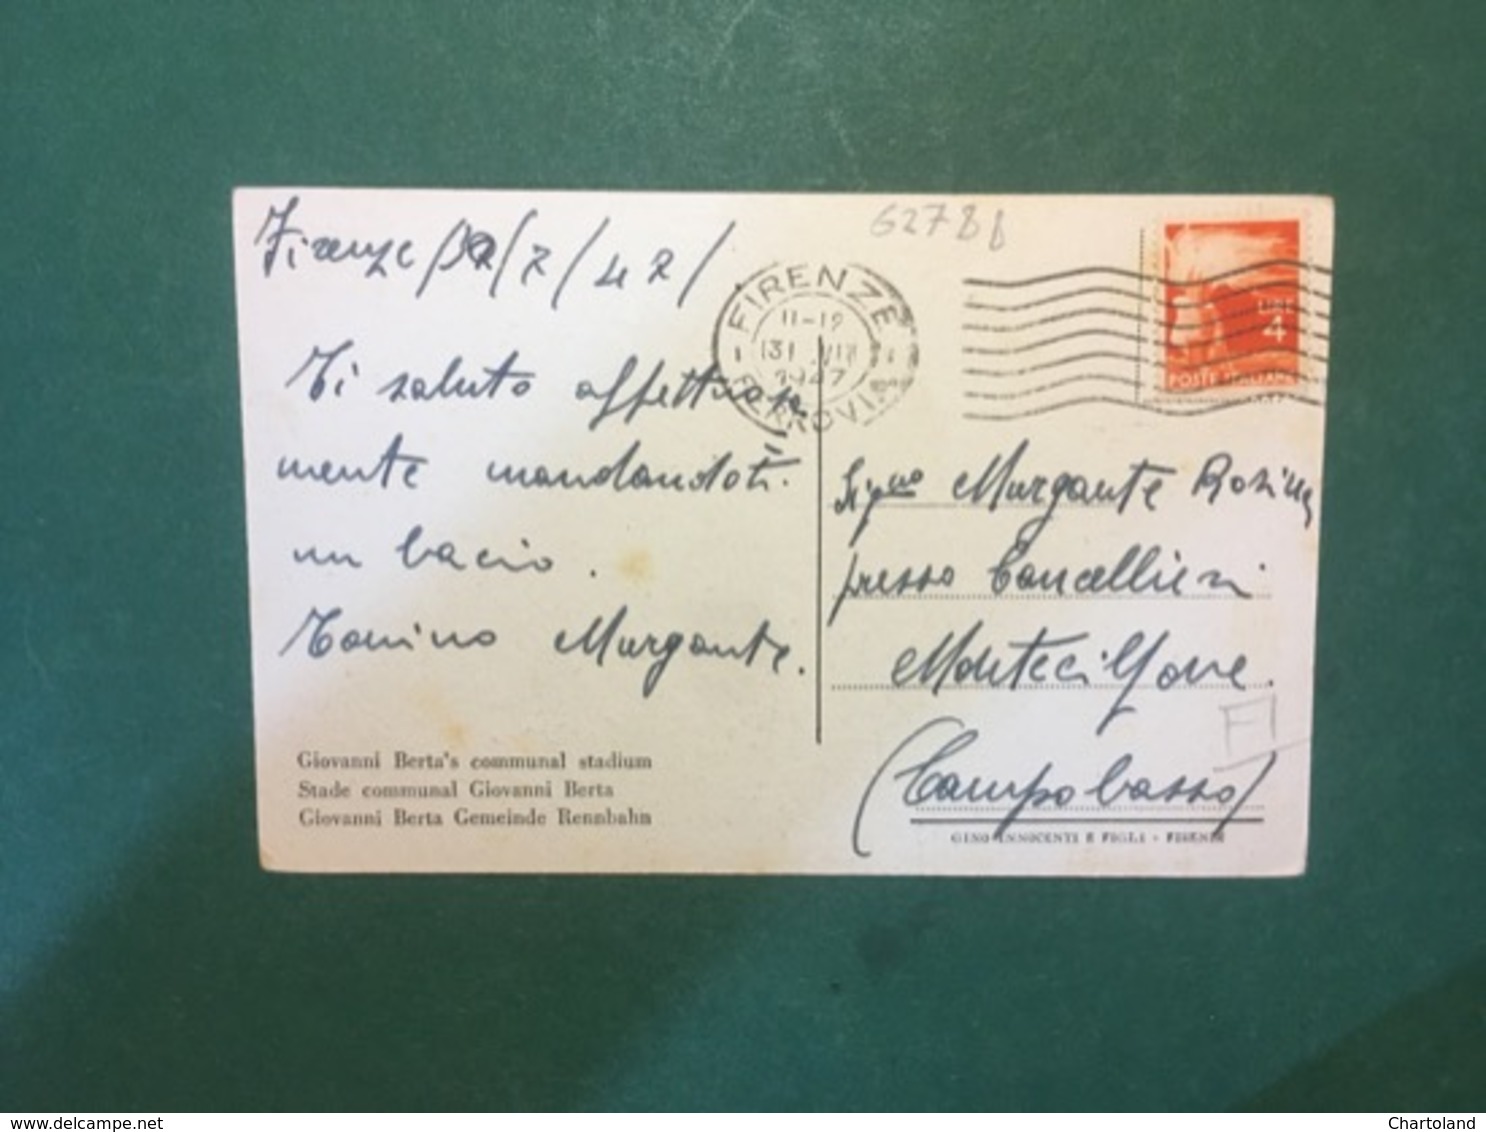 Firenze / 7 / 42 /
62781
FIRENZE
11-12
31 VII
1947
FERROVIA
LIRE
4
POSTE ITALIANE
Ti saluto affettuosa
mente mandandoti
un bacio.
Tonino Murgante.
Sig.na Murgante Rosina
presso Cancellieri
Montecilfone.
(Campobasso)
Giovanni Berta's communal stadium
Stade communal Giovanni Berta
Giovanni Berta Gemeinde Rennbahn
GINO INNOCENTI E FIGLI - FIRENZE
www.delcampe.net
Chartoland